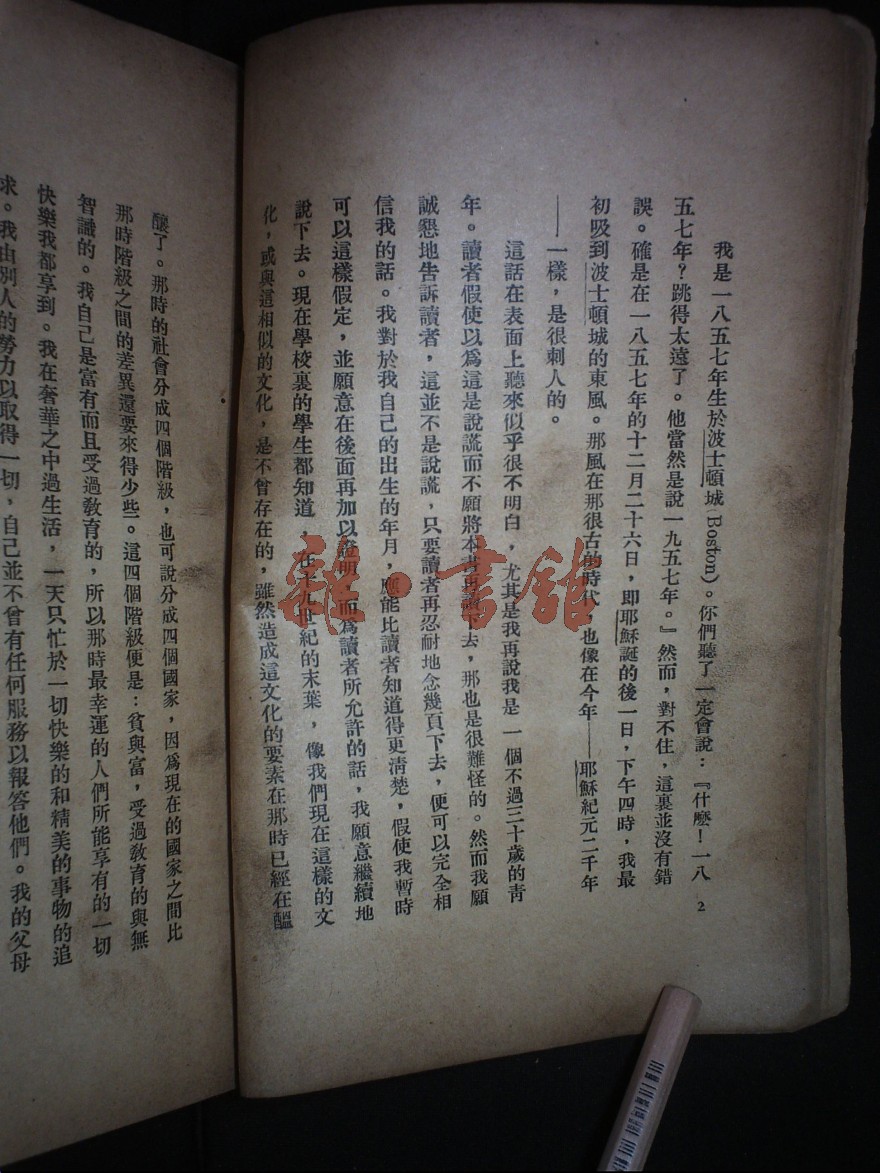 我是一八五七年生於波士頓城(Boston)。你們聽了一定會說：『什麼！一八
五七年？跳得太遠了。他當然是說一九五七年。』然而，對不住，這裏並沒有錯
誤。確是在一八五七年的十二月二十六日，即耶穌誕的後一日，下午四時，我最
初吸到波士頓城的東風。那風在那很古的時代，也像在今年——耶穌紀元二千年
——一樣，是很刺人的。
這話在表面上聽來似乎很不明白，尤其是我再說我是一個不過三十歲的靑
年。讀者假使以爲這是說謊而不願將本書再讀下去，那也是很難怪的。然而我願
誠懇地告訴讀者，這並不是說謊，只要讀者再忍耐地念幾頁下去，便可以完全相
信我的話。我對於我自己的出生的年月，應能比讀者知道得更淸楚，假使我暫時
可以這樣假定，並願意在後面再加以證明，而爲讀者所允許的話，我願意繼續地
說下去。現在學校裏的學生都知道，在十九世紀的末葉，像我們現在這樣的文
化，或與這相似的文化，是不曾存在的，雖然造成這文化的要素在那時已經在醞
2
釀了。那時的社會分成四個階級，也可說分成四個國家，因爲現在的國家之間比
那時階級之間的差異還要來得少些。這四個階級便是：貧與富，受過敎育的與無
智識的。我自己是富有而且受過敎育的，所以那時最幸運的人們所能享有的一切
快樂我都享到。我在奢華之中過生活，一天只忙於一切快樂的和精美的事物的追
求。我由別人的勞力以取得一切，自己並不曾有任何服務以報答他們。我的父母
雜·書館